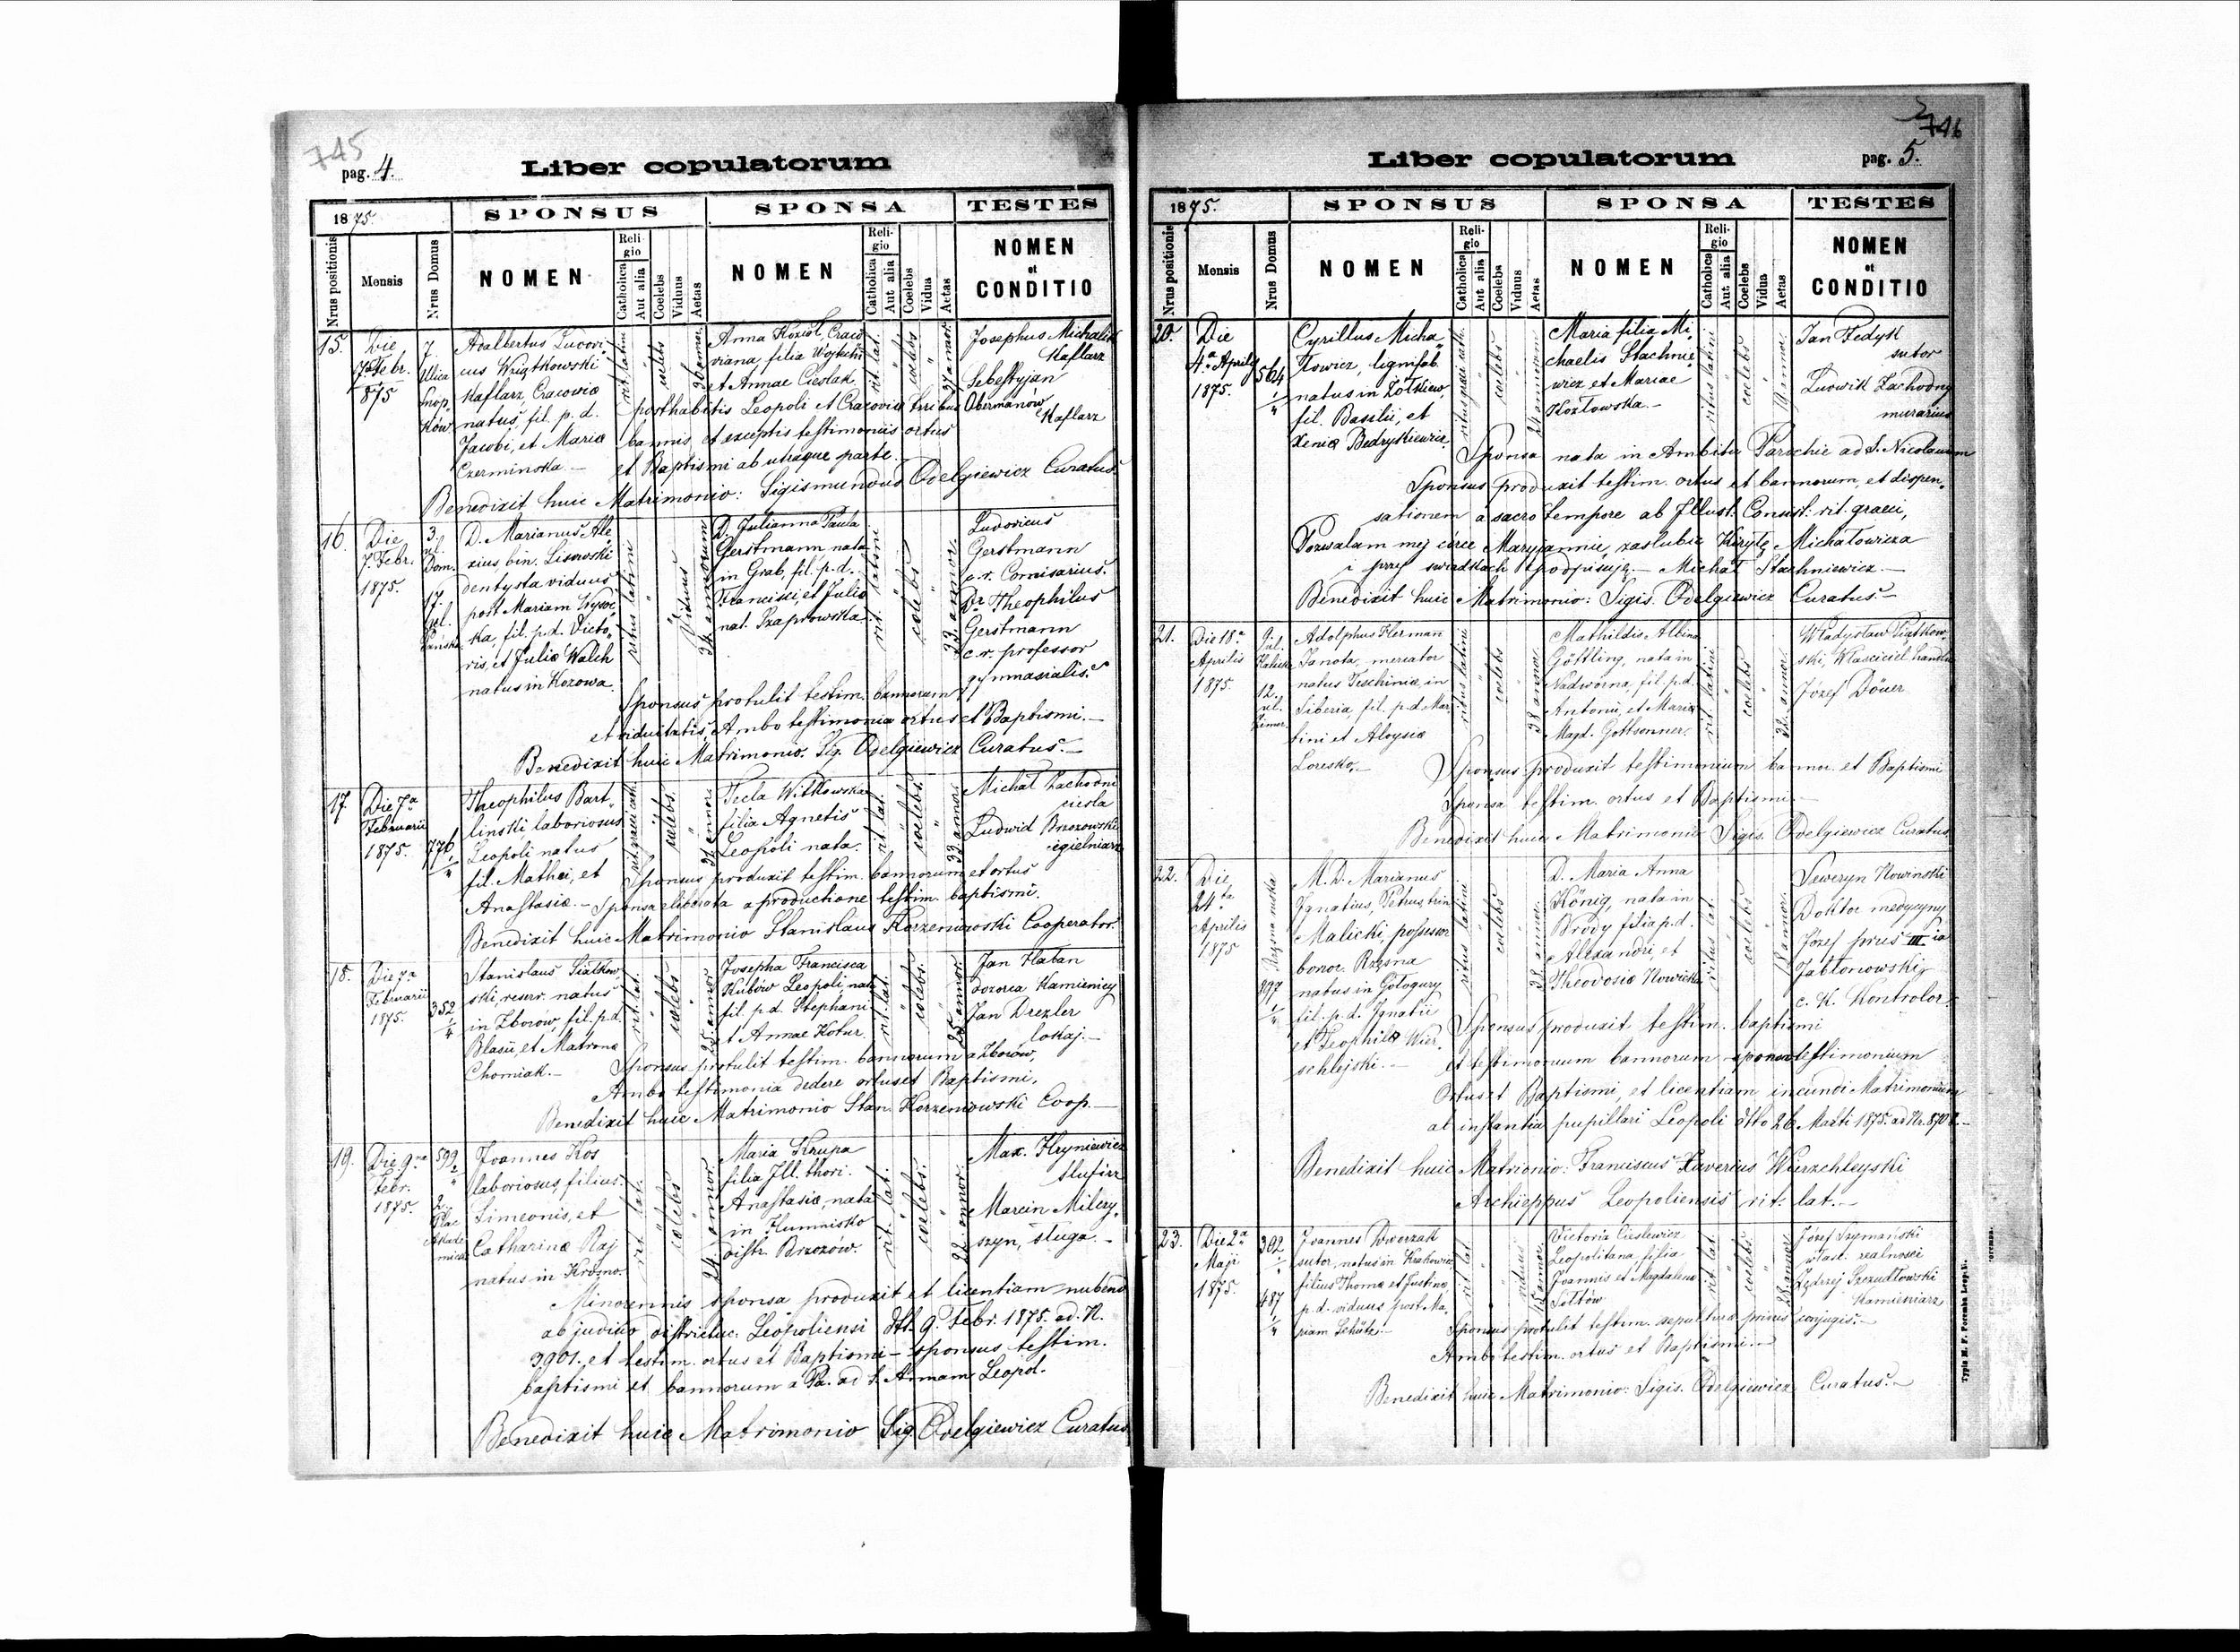 745
pag. 4.
Liber copulatorum
1875.
SPONSUS
SPONSA
TESTES
Nrus positionis
Mensis
Nrus Domus
NOMEN
Religio
Catholica
Aut alia
Coelebs
Viduus
Aetas
NOMEN
Religio
Catholica
Aut alia
Coelebs
Vidua
Aetas
NOMEN
et
CONDITIO
15.
Die
7a Febr.
1875
7.
Ulica
Snop
ków
Adalbertus Ludovi
cus Kwiątkowski
Kaflarz, Cracoviæ
natus, fil. p. d.
Jacobi, et Mariæ
Czerminska.
rit. latini
coelebs
Anna Kozioł, Craco
viana, filia
et Annae Cieslak.
rit. lat.
coelebs
Josephus Michalik
Kaflarz
Sebestyjan
Obermanów
Kaflarz
posthabitis Leopoli et Cracoviæ tribus
bannis, et exceptis testimoniis ortus
et Baptismi ab utraque parte.
Benedixit huic Matrimonio: Sigismundus Odelgiewicz Curatus
16.
Die
7. Febr.
1875.
3.
ul.
Dom.
17.
ul.
Pańska
D. Marianus Ale
xius, bin. Lisowski
dentysta viduus
post Mariam Wysoc
ka, fil. p. d. Victo
ris, et Juliæ Walch
natus in Kozowa.
ritus latini
Viduus
D. Julianna Paula
Gerstmann nata
in Grab, fil. p. d.
Francisci, et Juliæ
nat. Szaprowska
rit. latini
coelebs
33. annor.
Ludovicus
Gerstmann
c. r. Comisarius.
Dr Theophilus
Gerstmann
c. r. professor
gymnasialis.
Sponsus protulit testim. bannorum
et viduitatis, Ambo testimonia ortus et Baptismi.
Benedixit huic Matrimonio. Sig. Odelgiewicz Curatus.
17.
Die 7a
Februarii
1875.
776/4
Theophilus Bart
linski, laboriosus
Leopoli natus
fil. Mathei, et
Anastasiæ.
coelebs.
Tecla Witkowska
filia Agnetis
Leopoli nata.
rit. lat.
coelebs.
33. annor.
Michał Zachodni
ciesla
Ludwid Brzozowski
cegielniarz
Sponsus produxit testim. bannorum et ortus
Sponsa liberata a productione testim. baptismi.
Benedixit huic Matrimonio Stanislaus Korzeniowski Cooperator.
18.
Die 7a
Februarii
1875.
352/4
Stanislaus Siatkow
ski, reserv. natus
in Zborów, fil. p. d.
Blasii, et Matronæ
Chomiak.
rit. lat.
coelebs
25. annor.
Josepha Francisca
Kubów Leopoli nata
fil. p. d. Stephani
et Annae Kotur.
rit. lat.
coelebs.
25. annor.
Jan Haban
dozorca Kamienicy
Jan Drezler
lokaj.
Sponsus protulit testim. bannorum a Zborów,
Ambo testimonia dedere ortus et Baptismi.
Benedixit huic Matrimonio Stan. Korzeniowski Coop.
19.
Die 9na
Febr.
1875.
599/4
2.
Plac
Akade
micki
Joannes Kos
laboriosus, filius
Simeonis, et
Catharinæ Raj
natus in Krosno.
rit. lat.
coelebs
24. annor.
Maria Krupa
filia Ill. thori.
Anastasiæ, nata
in Humnisko
distr. Brzozów.
rit. lat.
coelebs.
22. annor.
Max. Hryniewicz
Marcin Milczy
szyn, sługa.
Minorennis sponsa produxit et licentiam nubend
ab judicio districtuc. Leopoliensi dtt. 9. Febr. 1875. ad. N.
3901. et testim. ortus et Baptismi — sponsus testim.
baptismi et bannorum a Pa. ad S. Annam Leopol.
Benedixit huic Matrimonio Sig. Odelgiewicz Curatus
746
pag. 5.
Liber copulatorum
1875.
SPONSUS
SPONSA
TESTES
Nrus positionis
Mensis
Nrus Domus
NOMEN
Religio
Catholica
Aut alia
Coelebs
Viduus
Aetas
NOMEN
Religio
Catholica
Aut alia
Coelebs
Vidua
Aetas
NOMEN
et
CONDITIO
20.
Die
4a Aprilis
1875.
564/4
Cyrillus Micha
łowicz, lignifab.
natus in Żółkiew,
fil. Basilii, et
Xeniæ Bedryskiewicz.
coelebs
Maria filia Mi
chaelis Stachnie
wicz et Mariae
Kozłowska.
ritus latini
coelebs
19. annor.
Jan Fedyk
sutor
Ludwik Zachodny
murarius
Sponsa nata in Ambitu Parochie ad S. Nicolaum
Sponsus produxit testim. ortus et bannorum, et dispen
sationem a sacro tempore ab Illust. Consist. rit. graeci,
Pozwalam mej córce Maryjannie, zaslubić Kiryłę Michałowicza
i przy swiadkach podpisuję. Michał Stachniewicz.
Benedixit huic Matrimonio: Sigis. Odelgiewicz Curatus.
21.
Die 18a
Aprilis
1875.
9.
ul.
Halicka
12.
ul.
Zimor.
Adolphus Herman
Janota, mercator
natus Teschiniæ, in
Siberia, fil. p. d. Mar
tini et Aloysiæ
Loresko,
ritus latini
coelebs
38 annor.
Mathildis Albina
Göttling, nata in
Nadworna, fil. p. d.
Antonii, et Mariæ
Magd. Gottsonner.
rit. latini
coelebs
32. annor.
Władysław Piątkow
ski, Własciciel handlu
Józef Döuer
Sponsus produxit testimonium bannor. et Baptismi
Sponsa testim. ortus et Baptismi.
Benedixit huic Matrimonio Sigis. Odelgiewicz Curatus
22.
Die
24ta
Aprilis
1875
Rzęsna
897/4
M. D. Marianus
Ignatius, Petrus, trin
Malicki, possessor
bonor. Rzęsna
natus in Gołogury
fil. p. d. Ignatii
et Teophilæ Wier
schlejski.
ritus latini
coelebs
38. annor.
D. Maria Anna
König, nata in
Brody filia p. d.
Alexandri, et
Theodosiæ Nowicka
ritus lat.
coelebs
Seweryn Nowinski
Doktor medycyny
Józef prus IIIio
Jabłonowski,
c. K. Kontrolor.
Sponsus produxit testim. baptismi
et testimonium bannorum sponsa testimonium
Ortus et Baptismi, et licentiam ineundi Matrimonium
ab instantia pupillari Leopoli dtto 26. Marti 1875. ad Nr.
Benedixit huic Matrionio: Franciscus Xaverius Wierzchleyski
Archieppus Leopoliensis rit: lat.
23.
Die 2a
Maji
1875.
302/4
487/4
Joannes Dworzak
sutor, natus in Krakowiec
filius Thomæ et Justinæ,
p. d. viduus post Ma
riam Schütz.
rit. lat.
viduus
45. annor.
Victoria Cieslewicz
Leopolitana, filia
Joannis et Magdalenæ
Sołtów
rit. lat.
coelebs.
28. annor.
Józef Szymański
włast. realnosci
Jędrzej Szczudłowski
Kamieniarz
Sponsus protulit testim. sepulturæ prioris conjugis.
Ambo testim. ortus et Baptismi.
Benedixit huic Matrimonio: Sigis. Odelgiewicz Curatus.
Typis M. F. Poremba Leop.